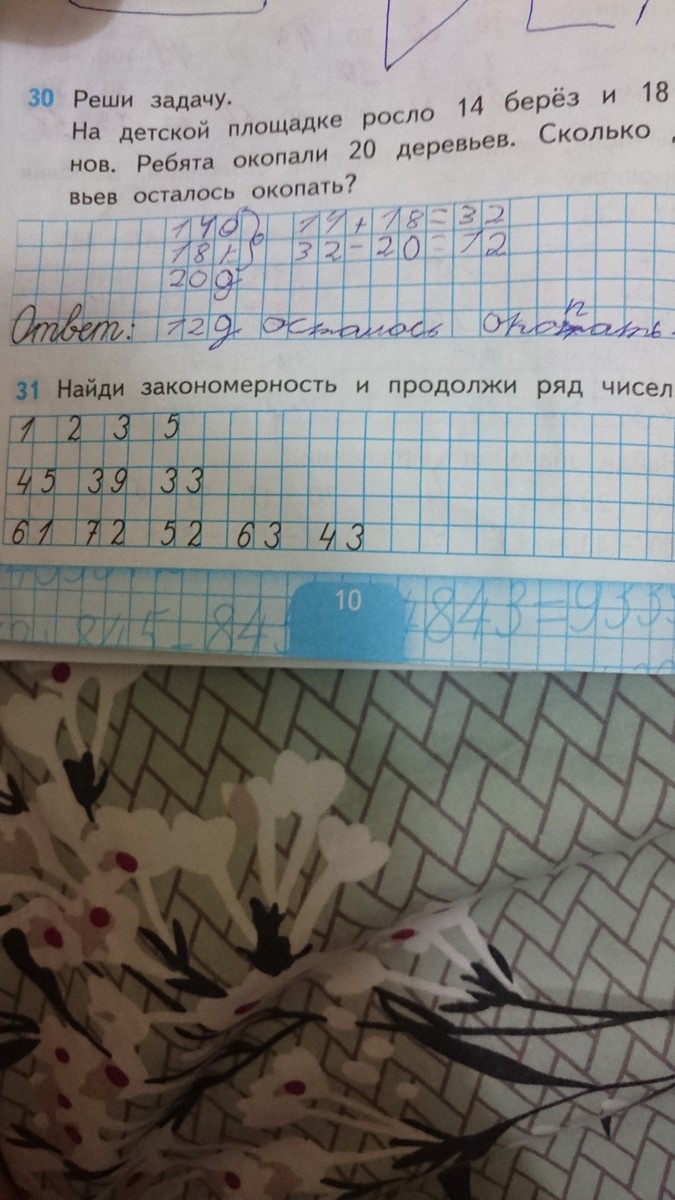 30 Реши задачу.
На детской площадке росло 14 берёз и 18
нов. Ребята окопали 20 деревьев. Сколько
вьев осталось окопать?
14 + 18 = 32
18 32 - 20 = 12
20 д
Ответ: 12 д осталось
31 Найди закономерность и продолжи ряд чисел
1 2 3 5
45 39 33
61 72 52 63 43
10
843 = 933